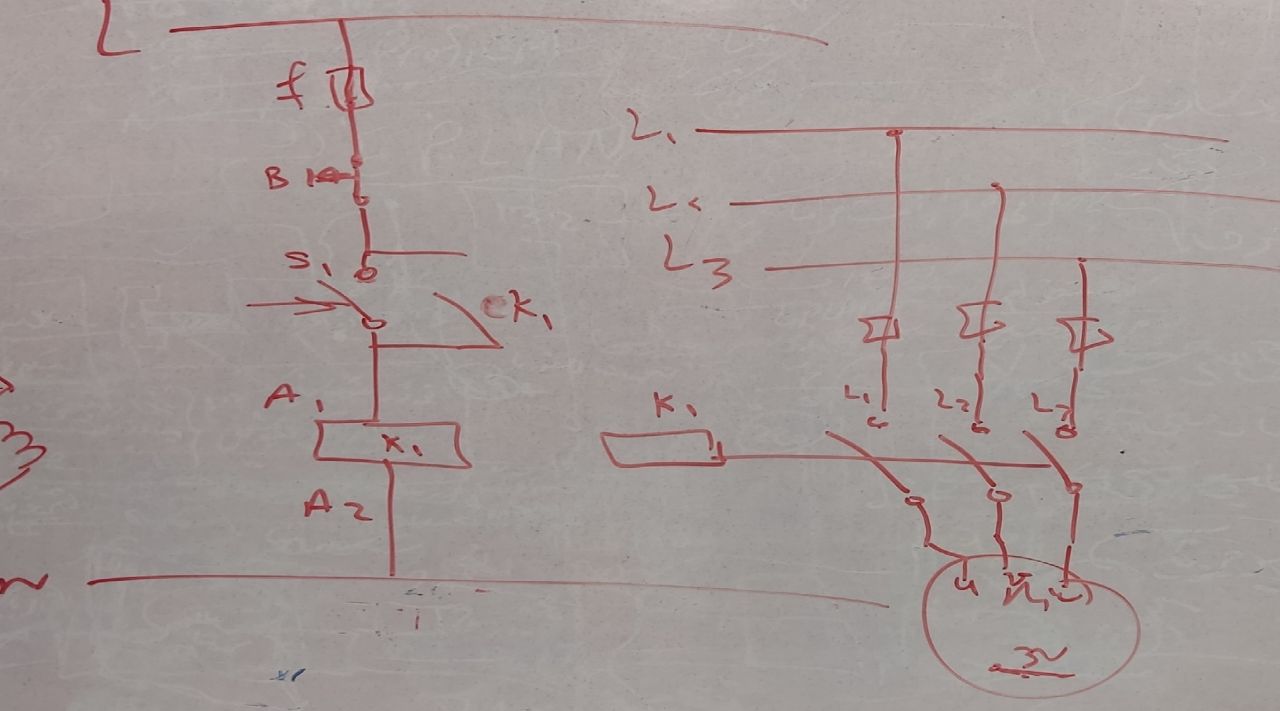 L
f
B1
S1
K1
A1
K1
A2
N
L1
L2
L3
L1
L2
L3
K1
U
M
3~